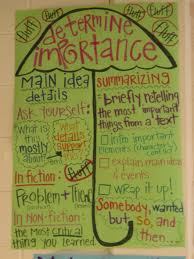 fluff
fluff
fluff
fluff
fluff
determine
importance
main idea
details
Ask yourself:
What is
this
mostly
about?
What
details
support
this?
In fiction:
Problem +
In non-fiction:
the most critical
thing you learned
summarizing
Briefly retelling
the most important
things from a text
intro important
elements
explain main ideas
4 events
wrap it up!
Somebody, wanted
but, so, and
then...